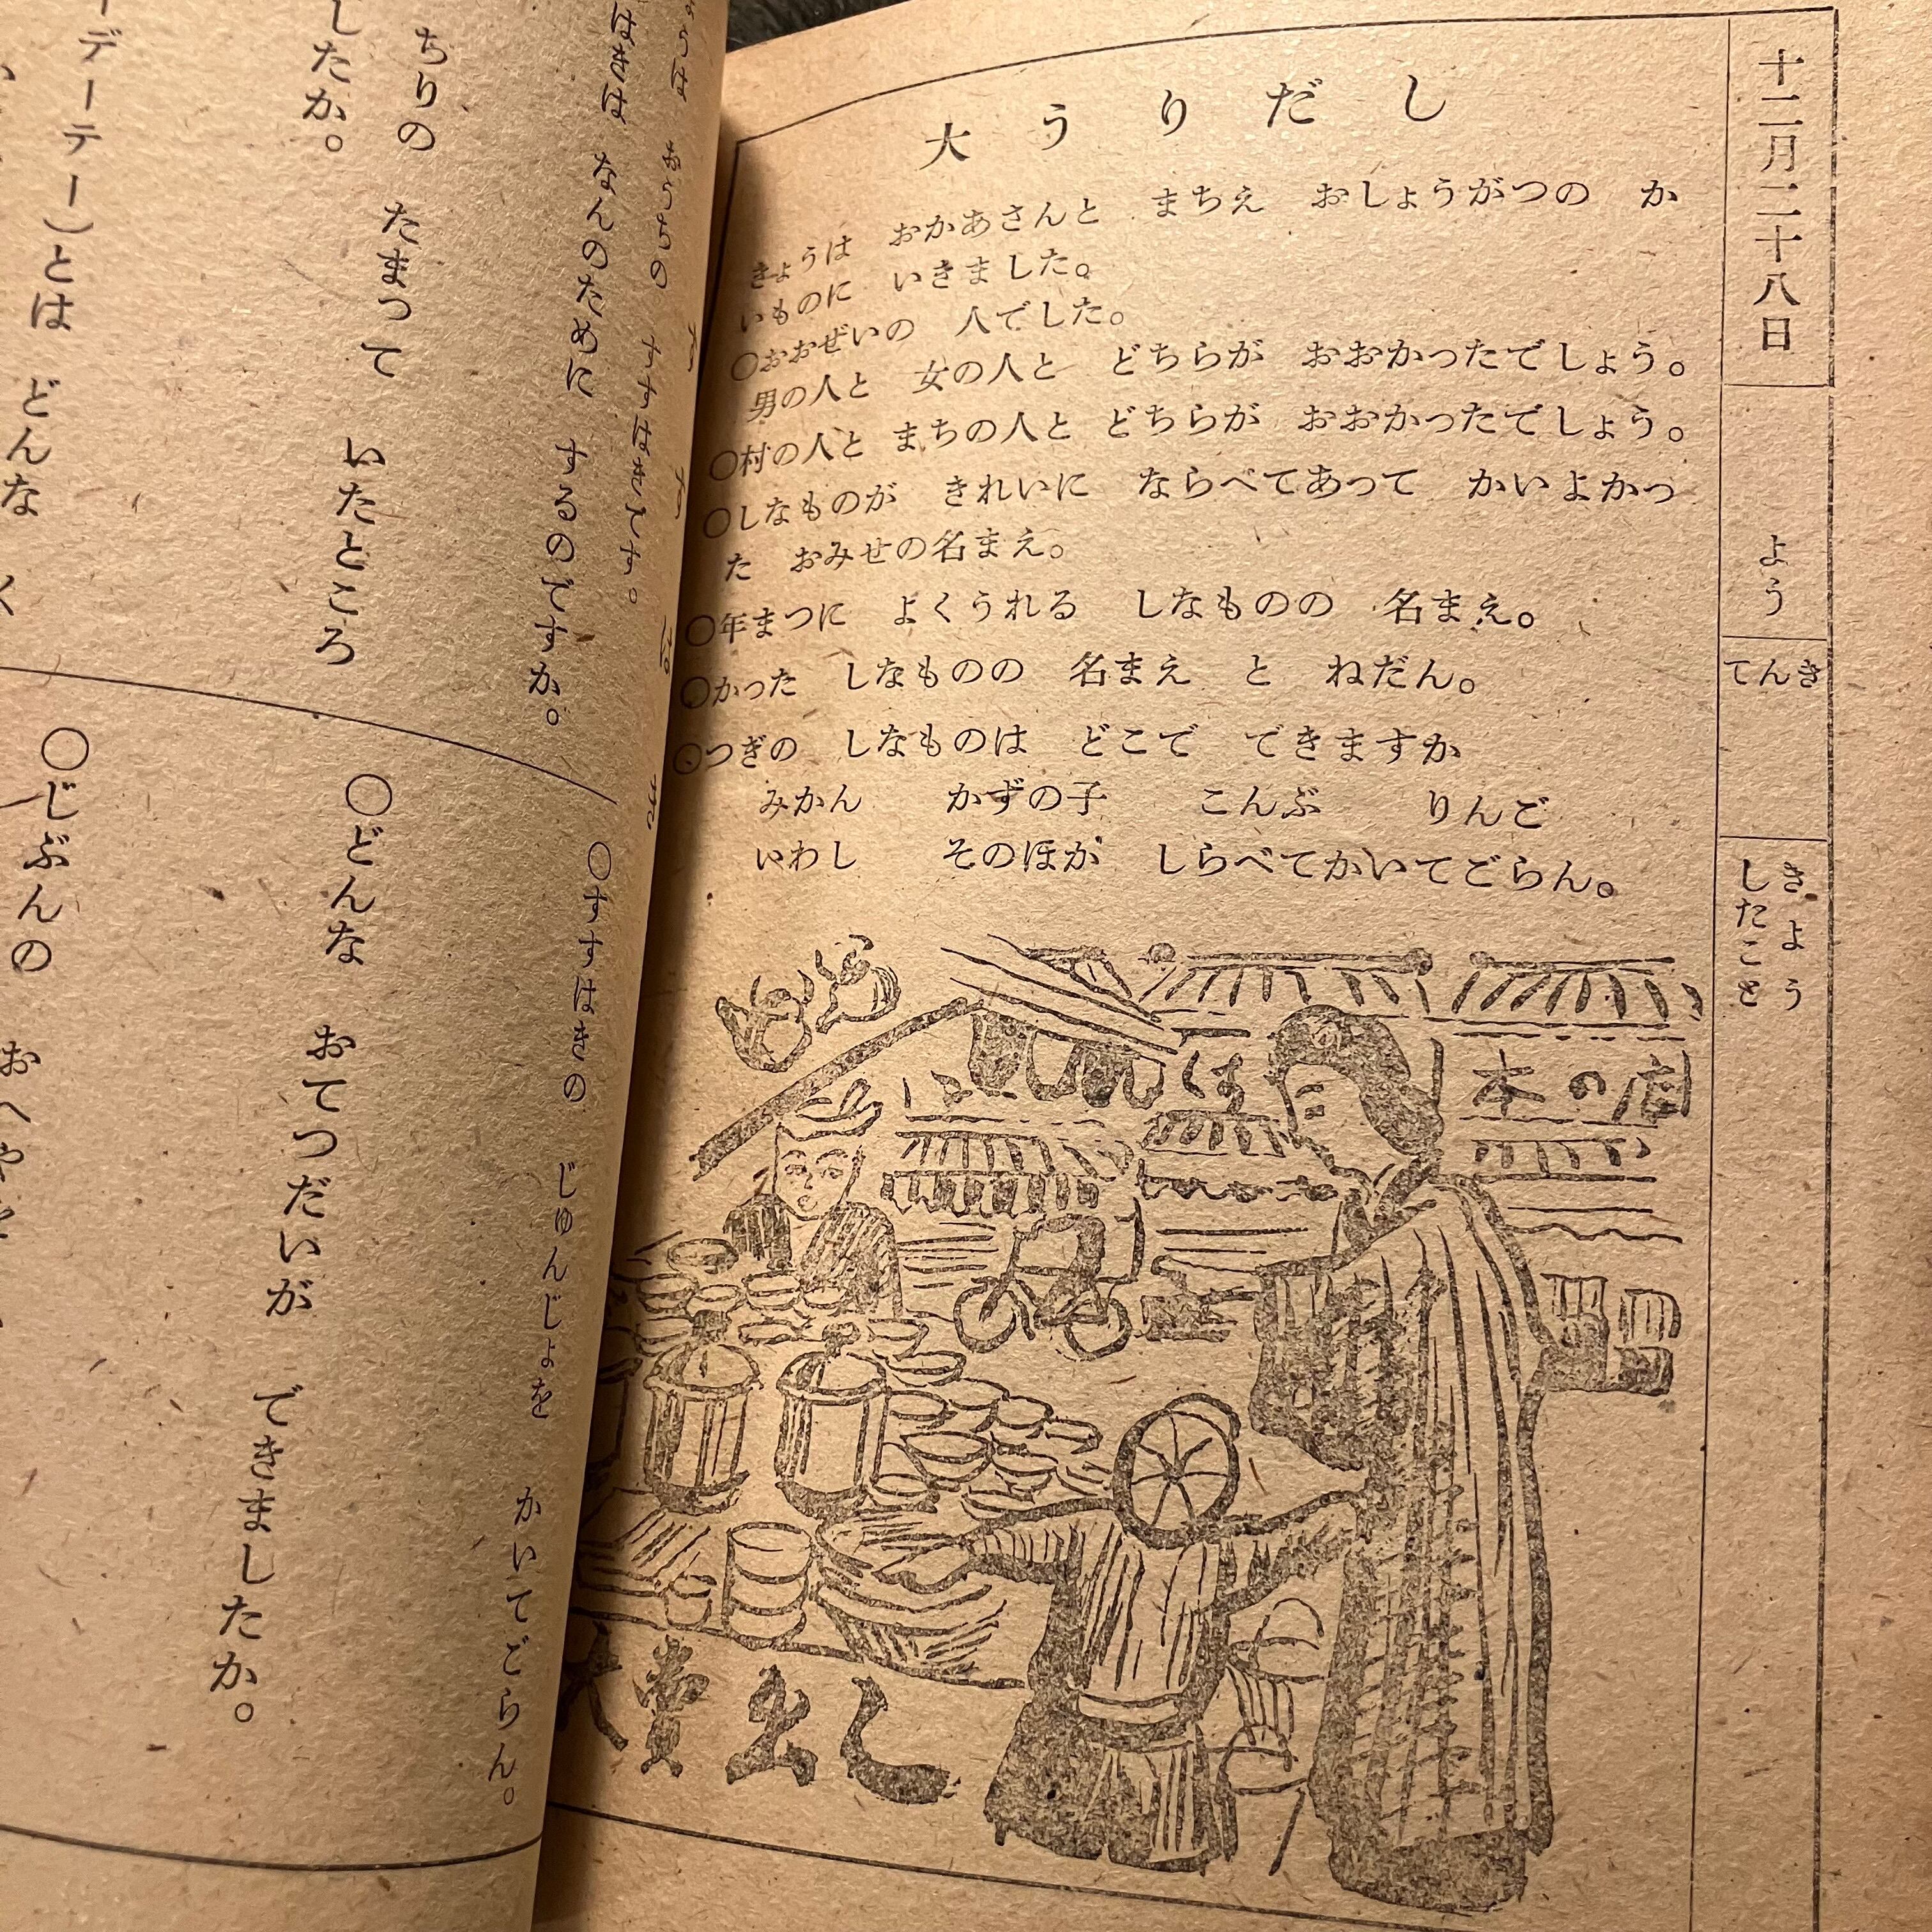 十二月二十八日
よう
てんき
きょう
したこと
大うりだし
きょうは おかあさんと まちえ おしょうがつの か
いものに いきました。
○おおぜいの 人でした。
男の人と 女の人と どちらが おおかったでしょう。
○村の人と まちの人と どちらが おおかったでしょう。
○しなものが きれいに ならべてあって かいよかっ
た おみせの名まえ。
○年まつに よくうれる しなものの 名まえ。
○かった しなものの 名まえ と ねだん。
○つぎの しなものは どこで できますか
みかん かずの子 こんぶ りんご
いわし そのほか しらべてかいてごらん。
本の店
大賣出し
おうちの すすはきです。
はきは なんのために するのですか。
ちりの たまって いたところ
したか。
ーデーテー)とは どんな
○すすはきの じゅんじょを かいてごらん。
○どんな おてつだいが できましたか。
○じぶんの おへや